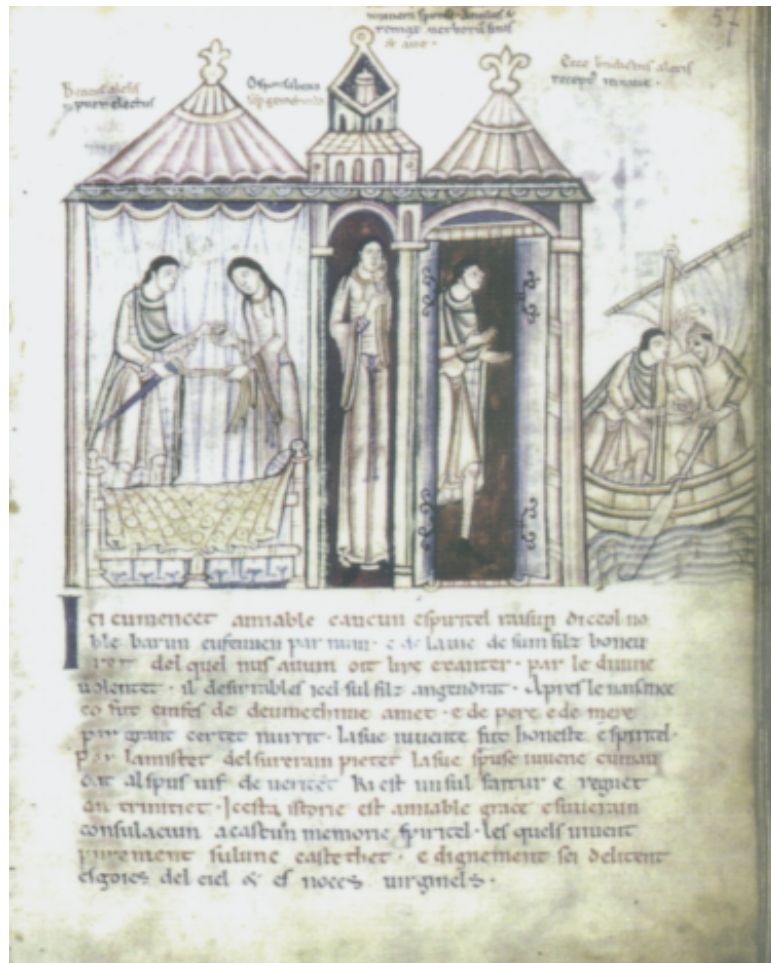 Beatus alexis
puer electus
O sponsa beata
semp gemebunda
Ecce benedictus alexis
receptus in naue ·
57
Ici cumencet amiable cancun espiritel raisun diceol no
ble barun eufemien par num · e de la uie de sum filz boneu
ret del quel nus auum oit lire e canter · par le diuine
uolentet · il desirrables icel sul filz angendrat · Apres le naisance
co fut emfes de deu methime amet · e de pere e de mere
par grant certet nurrit · la sue iuuente fut honeste e spiritel ·
Par lamistet del surerain pietet la sue spuse iuuene cuman
dat al spus uif de ueritet Ki est un sul faitur e regnet
an trinitiet · Icesta istorie est amiable grace e suuerain
consulaciun a cascun memorie spiritel · les quels uiuent
purement sulunc castethet · e dignement sei delitent
es goies del ciel & es noces uirginels ·